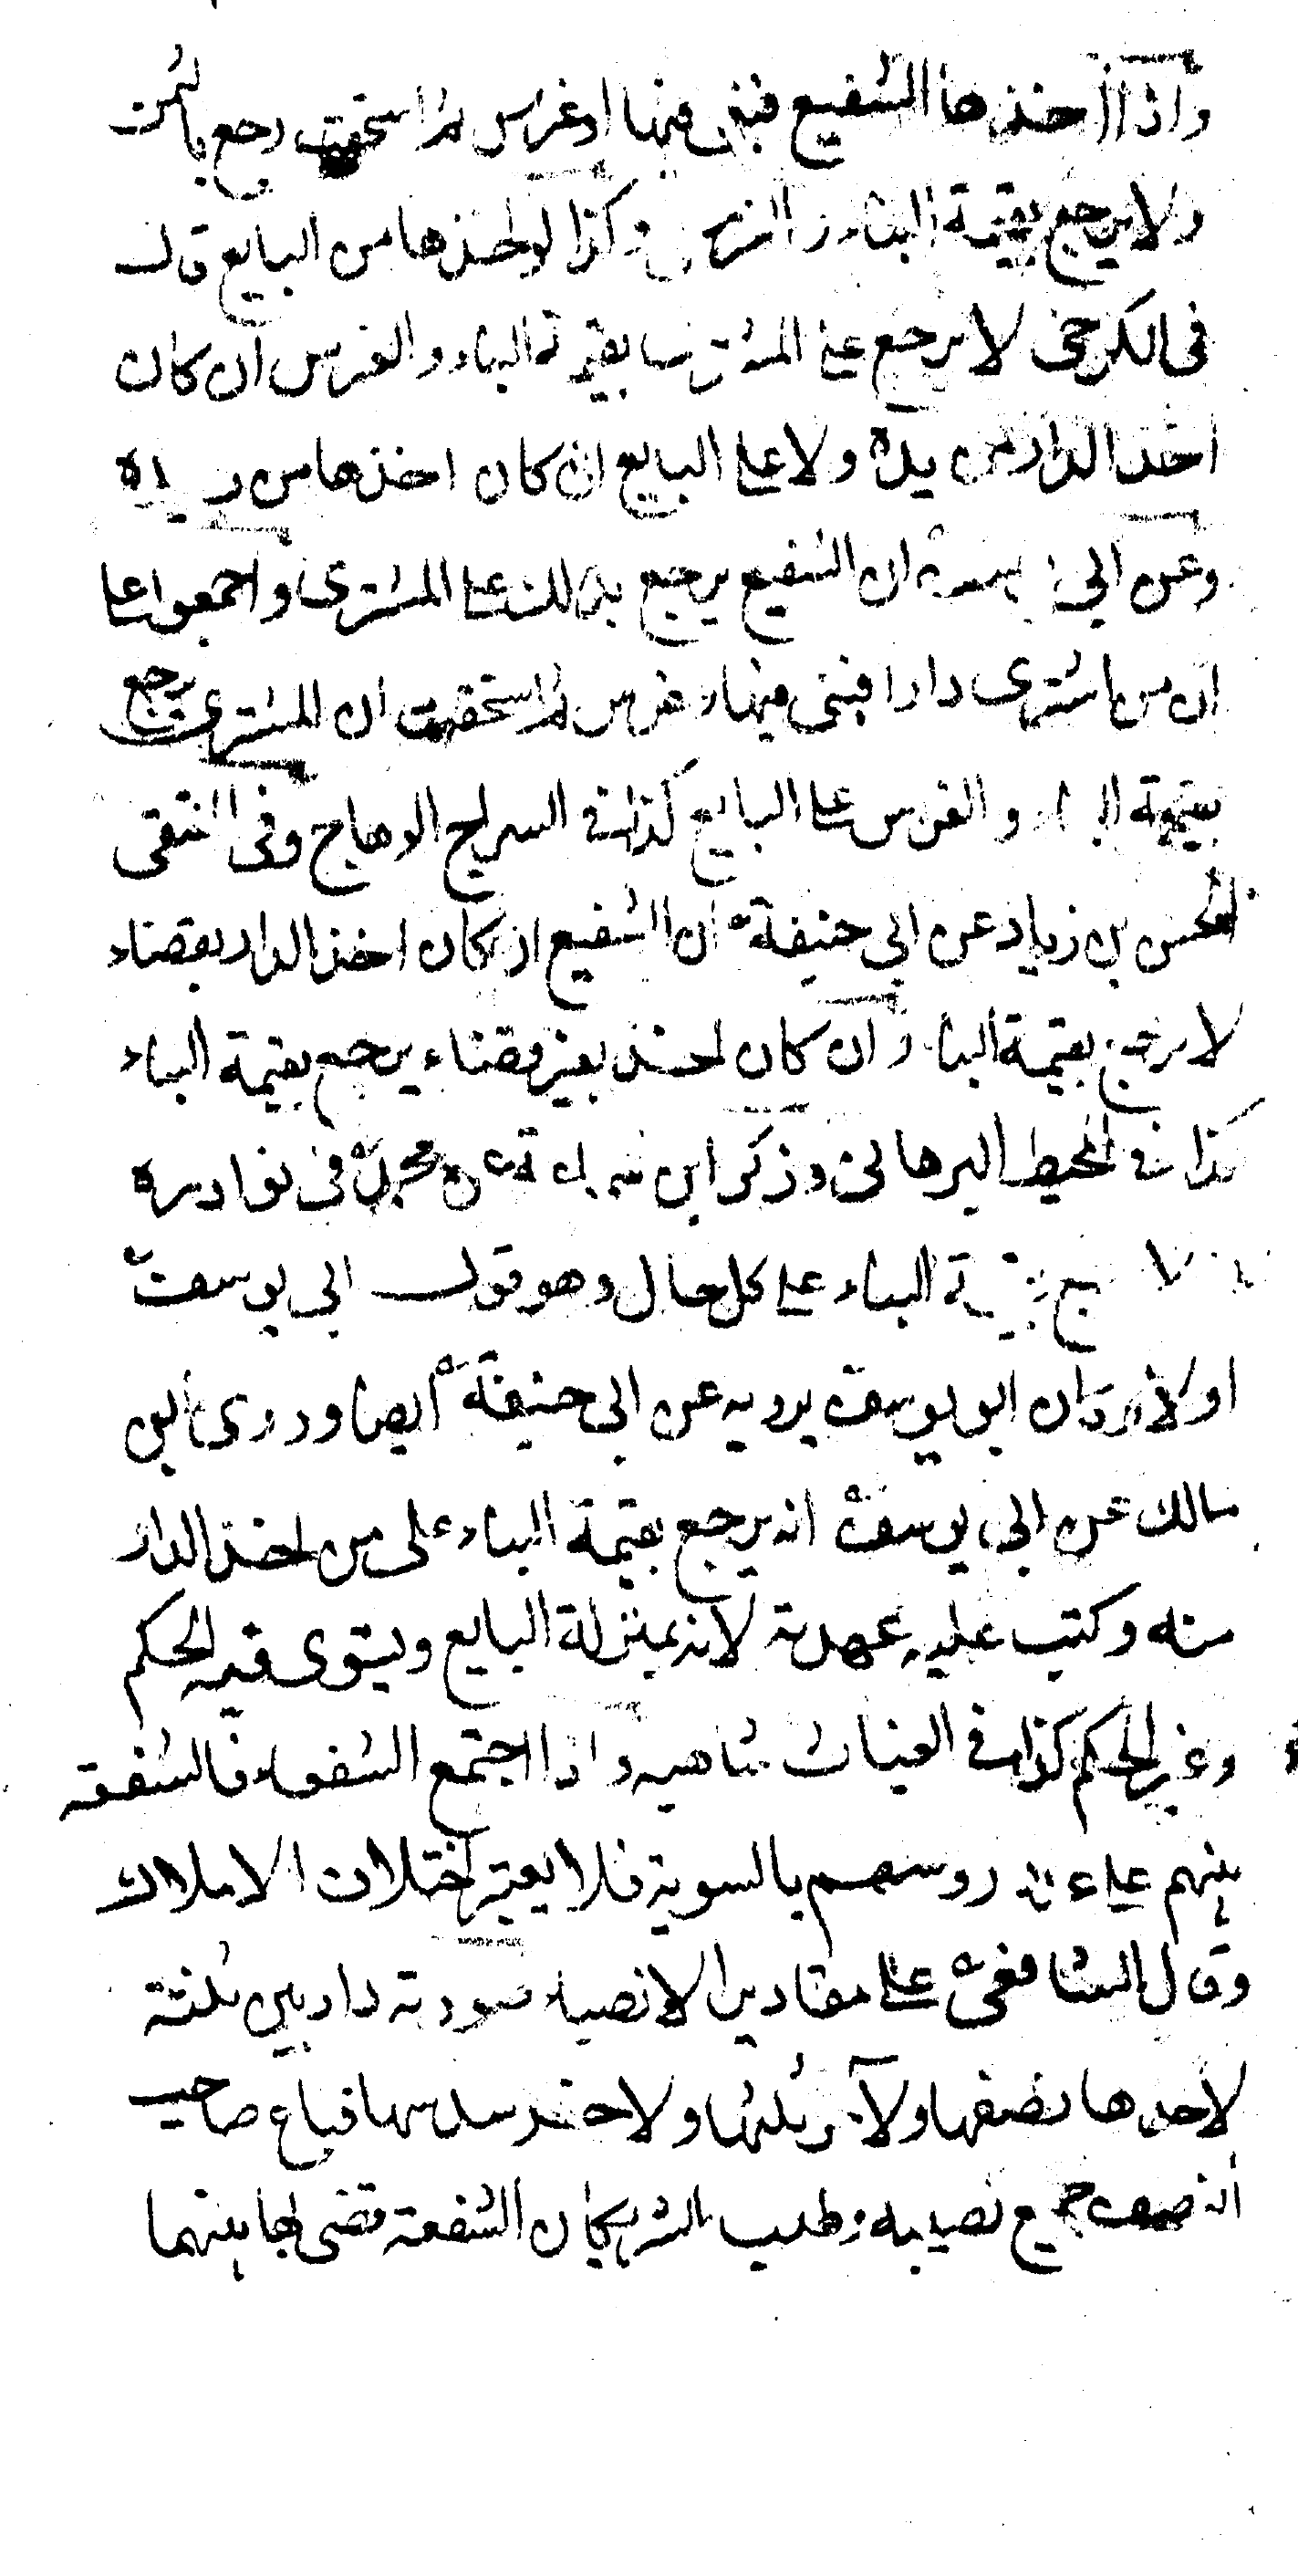 واذا اخذها الشفيع فبنى فيها او غرس ثم استحقت رجع بالثمن
ولا يرجع بقيمة البناء والغرس وكذا لو اخذها من البايع قال
فى الكرخى لا يرجع على المشترى بقيمة البناء والغرس ان كان
اخذ الدار من يده ولا على البايع ان كان اخذها من يده
وعن ابى يوسف ان الشفيع يرجع بذلك على المشترى واجمعوا على
ان من اشترى دارا فبنى فيها وغرس ثم استحقت ان المشترى يرجع
بقيمة البناء والغرس على البايع كذا فى السراج الوهاج وفى المنتقى
الحسن بن زياد عن ابى حنيفة ان الشفيع ان كان اخذ الدار بقضاء
لا يرجع بقيمة البناء وان كان اخذ بغير قضاء يرجع بقيمة البناء
كذا فى المحيط البرهانى وذكر ابن سماعة عن محمد فى نوادره
لا يرجع بقيمة البناء على كل حال وهو قول ابى يوسف
اولا ان ابو يوسف يرويه عن ابى حنيفة ايضا وروى ابن
مالك عن ابى يوسف انه يرجع بقيمة البناء على من اخذ الدار
منه وكتب عليه عهدته لانه بمنزلة البايع ويستوى فيه الحكم
وغير الحكم كذا فى الغياث شاهيه واذا اجتمع الشفعاء فالشفعة
بينهم على عدد روسهم بالسوية فلا يعتبر اختلاف الاملاك
وقال الشافعى على مقادير الانصباء صورته دار بين ثلثة
لاحدها نصفها ولآخر ثلثها ولاخر سدسها فباع صاحب
النصف جميع نصيبه وطلب الشريكان الشفعة قضى لها بينهما